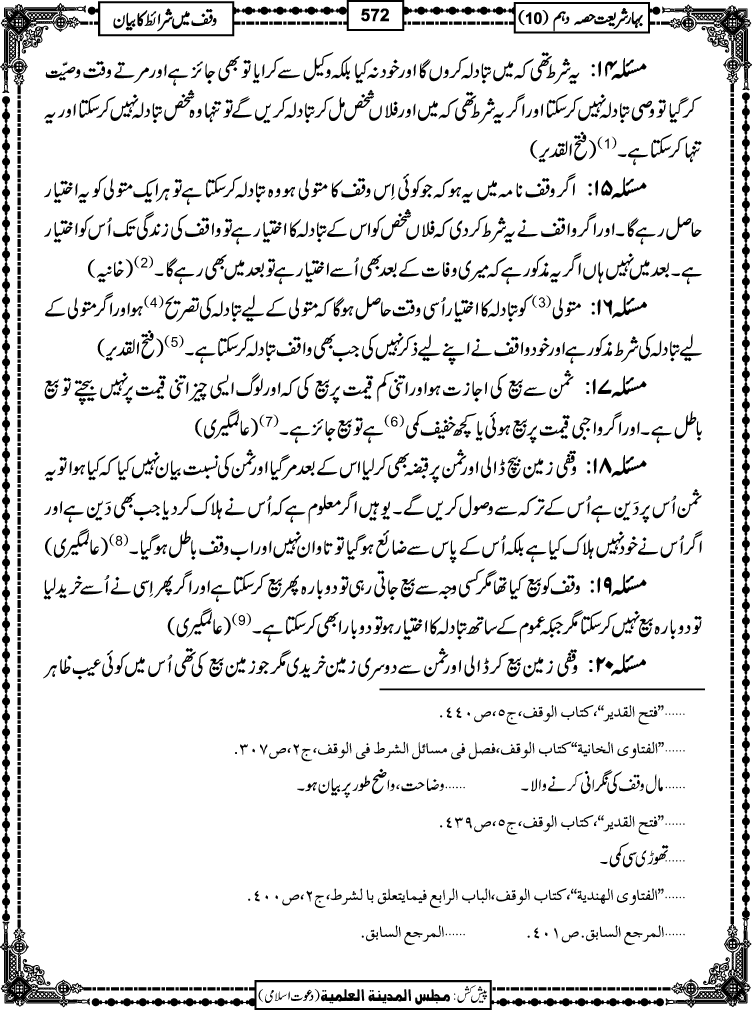 بہار شریعت حصہ دہم (10)
572
وقف میں شرائط کا بیان
مسئلہ ۱۴: یہ شرط تھی کہ میں تبادلہ کروں گا اور خود نہ کیا بلکہ وکیل سے کرایا تو بھی جائز ہے اور مرتے وقت وصیّت
کر گیا تو وصی تبادلہ نہیں کر سکتا اور اگر یہ شرط تھی کہ میں اور فلاں شخص مل کر تبادلہ کریں گے تو تنہا وہ شخص تبادلہ نہیں کر سکتا اور یہ
تنہا کر سکتا ہے۔(1) (فتح القدیر)
مسئلہ ۱۵: اگر وقف نامہ میں یہ ہو کہ جو کوئی اِس وقف کا متولی ہو وہ تبادلہ کر سکتا ہے تو ہر ایک متولی کو یہ اختیار
حاصل رہے گا۔ اور اگر واقف نے یہ شرط کر دی کہ فلاں شخص کو اس کے تبادلہ کا اختیار ہے تو واقف کی زندگی تک اُس کو اختیار
ہے۔ بعد میں نہیں ہاں اگر یہ مذکور ہے کہ میری وفات کے بعد بھی اُسے اختیار ہے تو بعد میں بھی رہے گا۔(2) (خانیہ)
مسئلہ ۱۶: متولی(3) کو تبادلہ کا اختیار اُسی وقت حاصل ہوگا کہ متولی کے لیے تبادلہ کی تصریح(4) ہو اور اگر متولی کے
لیے تبادلہ کی شرط مذکور ہے اور خود واقف نے اپنے لیے ذکر نہیں کی جب بھی واقف تبادلہ کر سکتا ہے۔(5) (فتح القدیر)
مسئلہ ۱۷: ثمن سے بیع کی اجازت ہو اور اتنی کم قیمت پر بیع کی کہ اور لوگ ایسی چیز اتنی قیمت پر نہیں بیچتے تو بیع
باطل ہے۔ اور اگر واجبی قیمت پر بیع ہوئی یا کچھ خفیف کمی(6) ہے تو بیع جائز ہے۔(7) (عالمگیری)
مسئلہ ۱۸: وقفی زمین بیچ ڈالی اور ثمن پر قبضہ بھی کر لیا اس کے بعد مر گیا اور ثمن کی نسبت بیان نہیں کیا کہ کیا ہوا تو یہ
ثمن اُس پر دَین ہے اُس کے ترکہ سے وصول کریں گے۔ یوہیں اگر معلوم ہے کہ اُس نے ہلاک کر دیا جب بھی دَین ہے اور
اگر اُس نے خود نہیں ہلاک کیا ہے بلکہ اُس کے پاس سے ضائع ہو گیا تو تاوان نہیں اور اب وقف باطل ہو گیا۔(8) (عالمگیری)
مسئلہ ۱۹: وقف کو بیع کیا تھا مگر کسی وجہ سے بیع جاتی رہی تو دوبارہ پھر بیع کر سکتا ہے اور اگر پھر اِسی نے اُسے خرید لیا
تو دوبارہ بیع نہیں کر سکتا مگر جبکہ عموم کے ساتھ تبادلہ کا اختیار ہو تو دوبارا بھی کر سکتا ہے۔(9) (عالمگیری)
مسئلہ ۲۰: وقفی زمین بیع کر ڈالی اور ثمن سے دوسری زمین خریدی مگر جو زمین بیع کی تھی اُس میں کوئی عیب ظاہر
......”فتح القدیر“، کتاب الوقف، ج٥، ص٤٤٠.
......”الفتاوی الخانیة“ کتاب الوقف، فصل فی مسائل الشرط فی الوقف، ج٢، ص٣٠٧.
......مال وقف کی نگرانی کرنے والا۔ ......وضاحت، واضح طور پر بیان ہو۔
......”فتح القدیر“، کتاب الوقف، ج٥، ص٤٣٩.
......تھوڑی سی کمی۔
......”الفتاوی الهندیة“، کتاب الوقف، الباب الرابع فیمایتعلق با لشرط، ج٢، ص٤٠٠.
......المرجع السابق. ص٤٠١. ......المرجع السابق.
پیش کش: مجلس المدینة العلمیة (دعوت اسلامی)